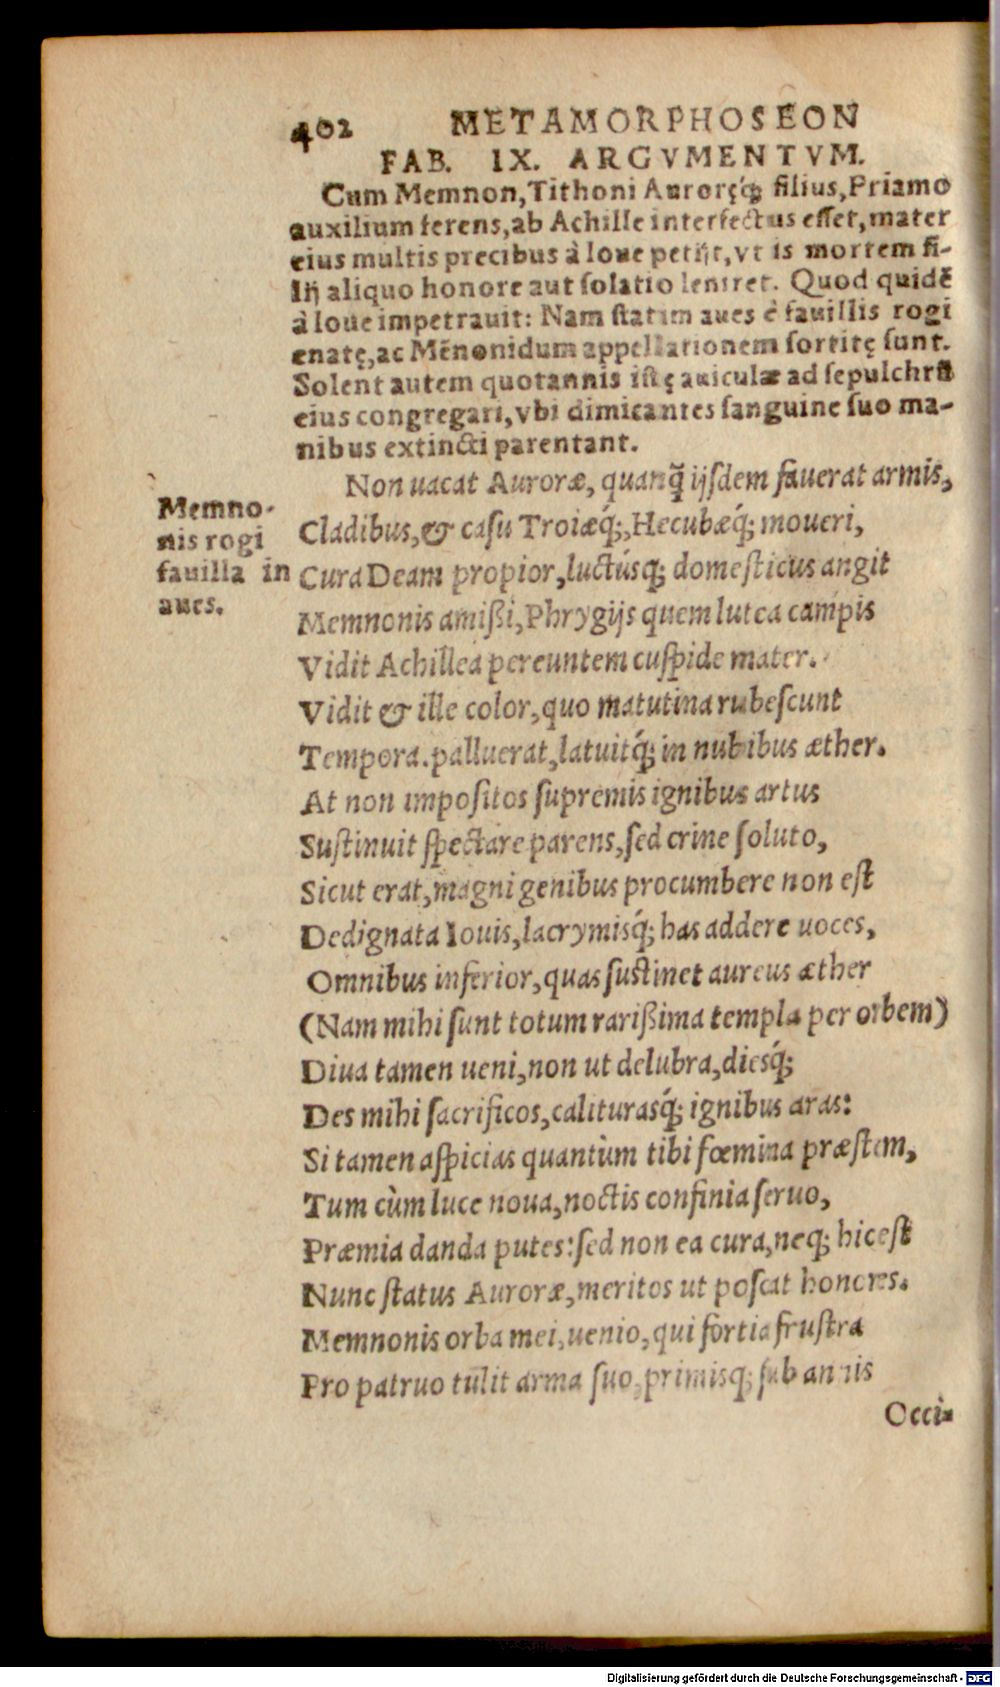 402 METAMORPHOSEON
FAB. IX. ARGVMENTVM.
Cum Memnon, Tithoni Auroręq́; filius, Priamo
auxilium ferens, ab Achille interfectus eſſet, mater
eius multis precibus à Ioue petijt, vt is mortem fi-
lij aliquo honore aut ſolatio leniret. Quod quidē
à Ioue impetrauit: Nam ſtatim aues è fauillis rogi
enatę, ac Mēnonidum appellationem ſortitę ſunt.
Solent autem quotannis iſtę auiculæ ad ſepulchrū
eius congregari, vbi dimicantes ſanguine ſuo ma-
nibus extincti parentant.
Non uacat Auroræ, quanq̃ ijſdem fauerat armis,
Memno-
nis rogi
fauilla in
aues.
Cladibus, & caſu Troiæq́;, Hecubæq́; moueri,
Cura Deam propior, luctúsq; domeſticus angit
Memnonis amißi, Phrygijs quem lutea campis
Vidit Achillea pereuntem cuſpide mater.
Vidit & ille color, quo matutina rubeſcunt
Tempora. palluerat, latuitq́; in nubibus æther.
At non impoſitos ſupremis ignibus artus
Suſtinuit ſpectare parens, ſed crine ſoluto,
Sicut erat, magni genibus procumbere non eſt
Dedignata Iouis, lacrymisq́; has addere uoces,
Omnibus inferior, quas ſuſtinet aureus æther
(Nam mihi ſunt totum rarißima templa per orbem)
Diua tamen ueni, non ut delubra, diesq́;
Des mihi ſacrificos, caliturasq́; ignibus aras:
Si tamen aſpicias quantùm tibi fœmina præſtem,
Tum cùm luce noua, noctis confinia ſeruo,
Præmia danda putes: ſed non ea cura, neq; hic eſt
Nunc ſtatus Auroræ, meritos ut poſcat honores.
Memnonis orba mei, uenio, qui fortia fruſtra
Pro patruo tulit arma ſuo, primisq; ſub annis
Occi-
Digitalisierung gefördert durch die Deutsche Forschungsgemeinschaft - DFG